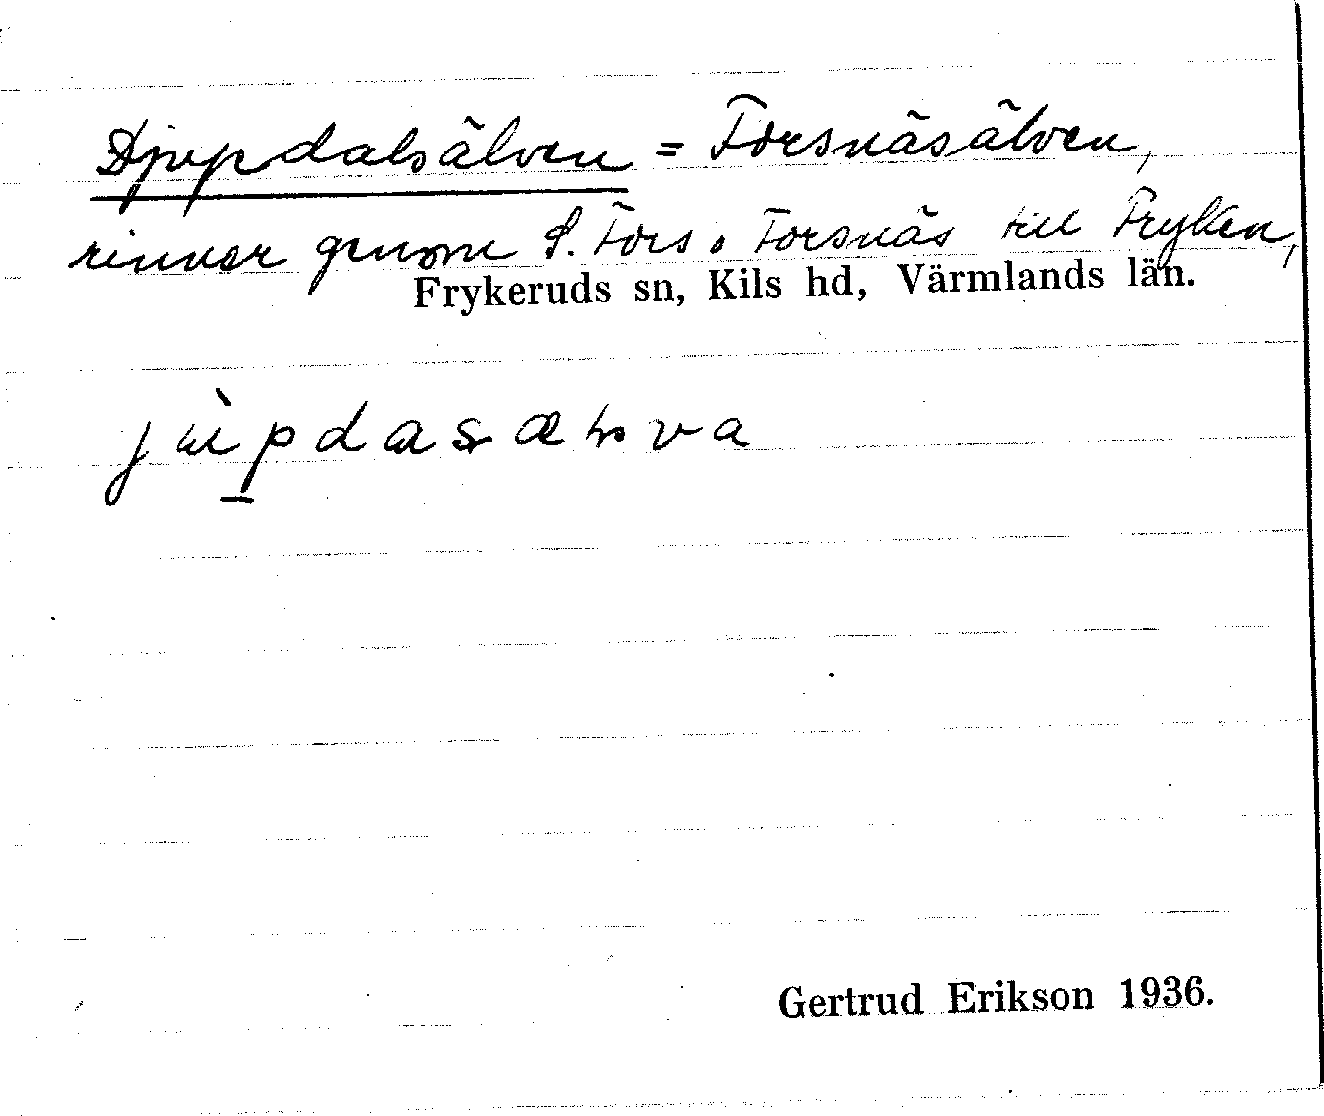 Djupdalsälven = Forsnäsälven,
rinner genom S. Fors o Forsnäs till Fryken,
Frykeruds sn, Kils hd, Värmlands län.
Gertrud Erikson 1936.